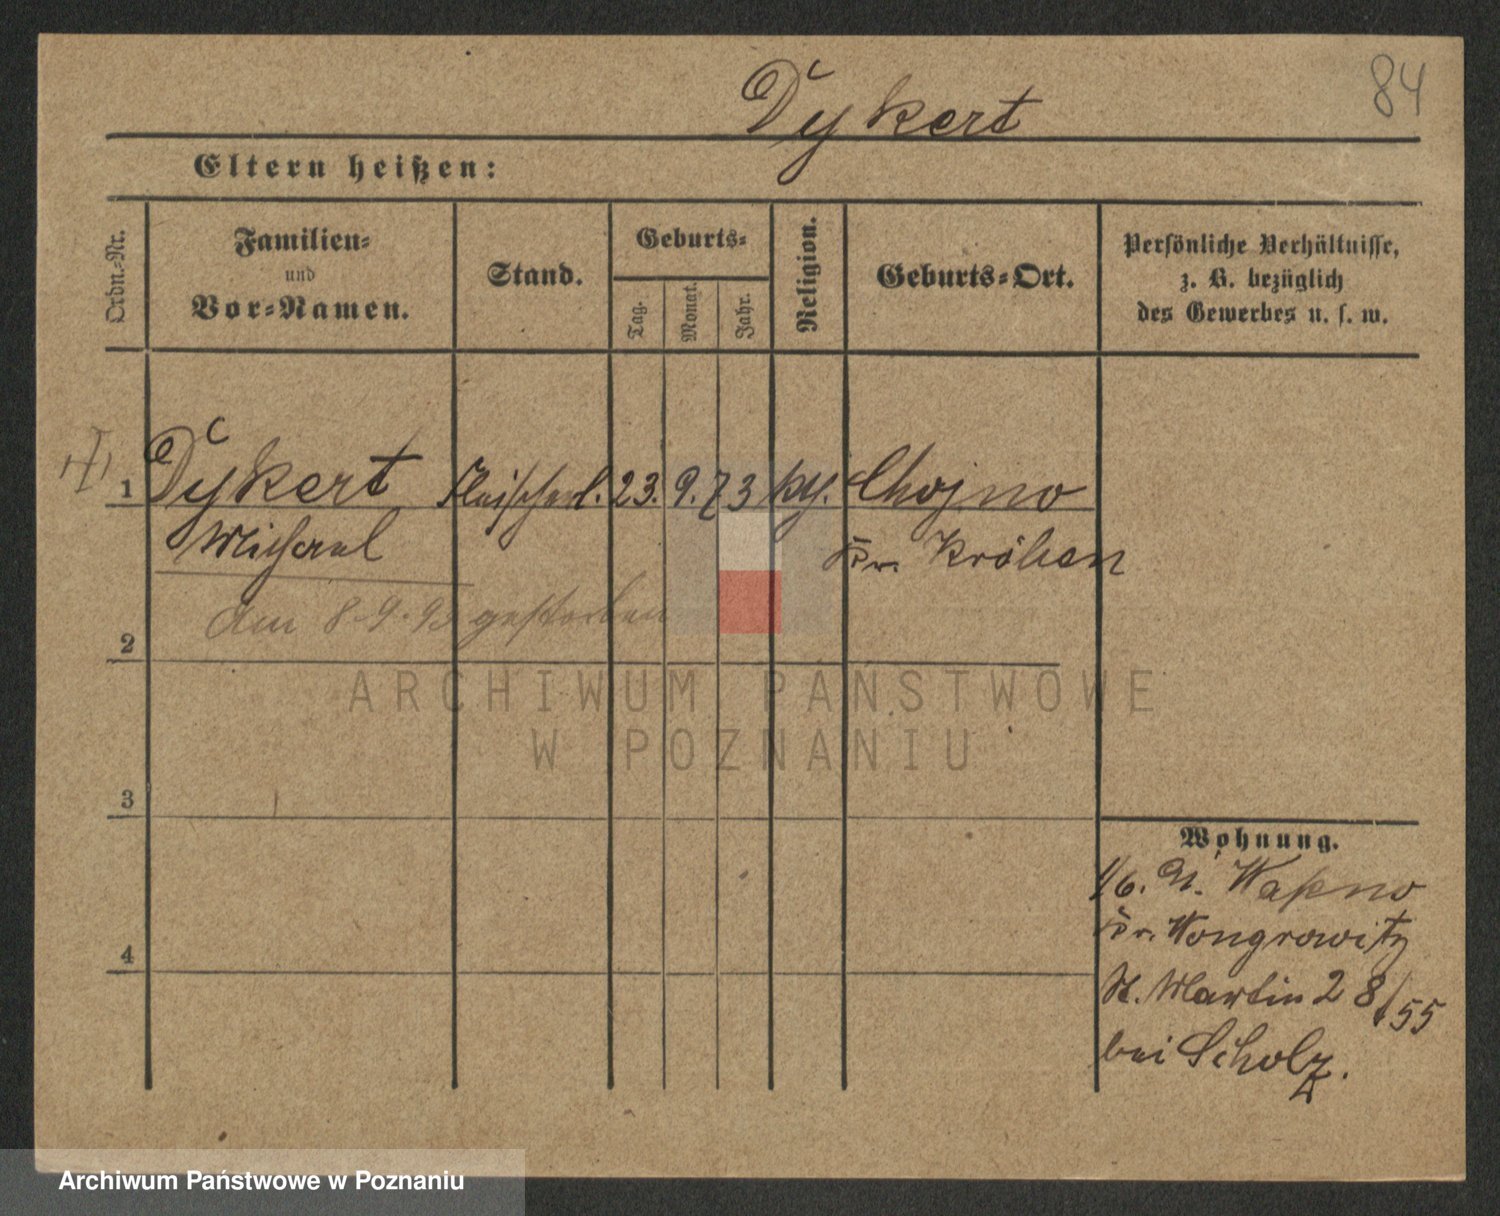 84
Dykert
Eltern heißen:
Ordn.-Nr.
Familien-
und
Vor-Namen.
Stand.
Geburts-
Tag.
Monat.
Jahr.
Religion.
Geburts-Ort.
Persönliche Verhältnisse,
z. B. bezüglich
des Gewerbes u. s. w.
1 Dykert Fleischerl. 23. 9. 73 Chojno
Michael Kr. Kröben
am 8.9.93 gestorben
2
3
4
Wohnung.
1/6. Wapno
Kr. Wongrowitz
St. Martin 28/55
bei Scholz.
ARCHIWUM PAŃSTWOWE
W POZNANIU
Archiwum Państwowe w Poznaniu